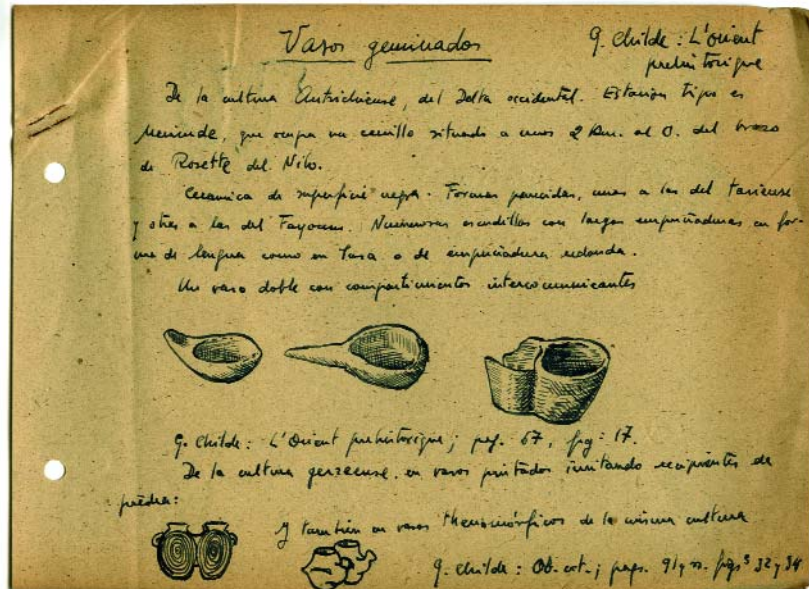 Vasos geminados
G. Childe: L'Orient
prehistorique
De la cultura Antrichiense, del Delta occidental. Estacion tipo es
Merimde, que ocupa un cerrillo situado a unos 2 Km. al O. del brazo
de Rosette del Nilo.
Ceramica de superficie negra. Formas parecidas, unas a las del tasiense
y otras a las del Fayoum. Numerosas escudillas con largas empuñaduras en for-
ma de lengua como en Tasa o de empuñadura redonda.
Un vaso doble con compartimientos intercomunicantes
G. Childe: L'Orient prehistorique; pag. 67, fig: 17.
De la cultura gerzeense, en vasos pintados imitando recipientes de
piedra:
Y también en vasos theriomórficos de la misma cultura
G. Childe: Ob. cit.; pags. 91 y ss. figs 32 y 34